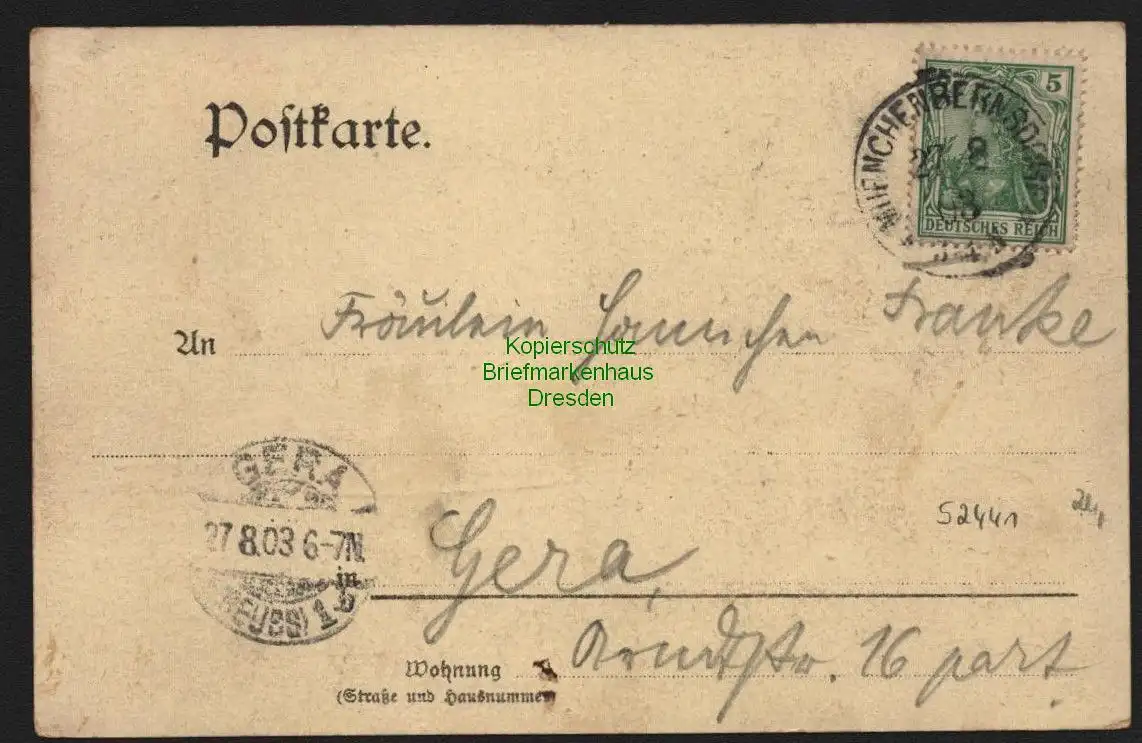 Postkarte.
5
MUENCHENBERNSDORF
27 8
03
DEUTSCHES REICH
An Fräulein Hannchen Franke
Kopierschutz
Briefmarkenhaus
Dresden
GERA
27 8.03 6-7N.
(REUSS) 1
52441
in Gera,
Wohnung Arndtstr. 16 part
(Straße und Hausnummer)